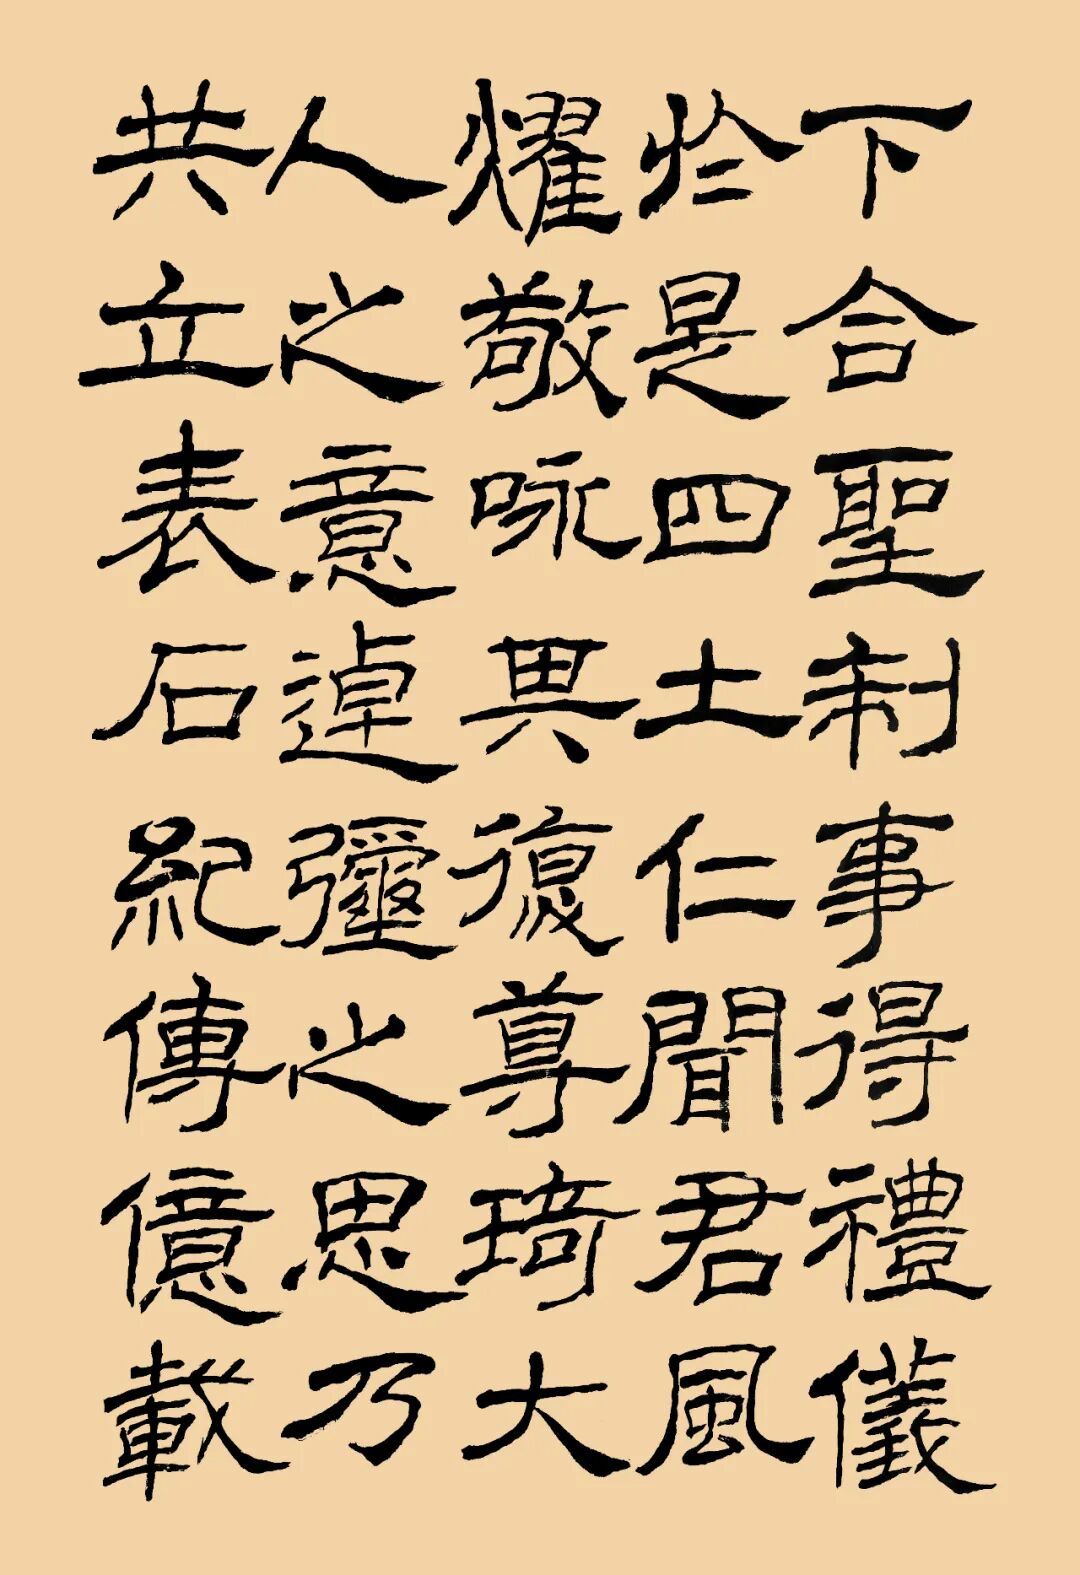 下合聖制事得禮儀
於是四土仁聞君風
燿敬咏其德尊琦大
人之意逴彌之思乃
共立表石紀傳億載